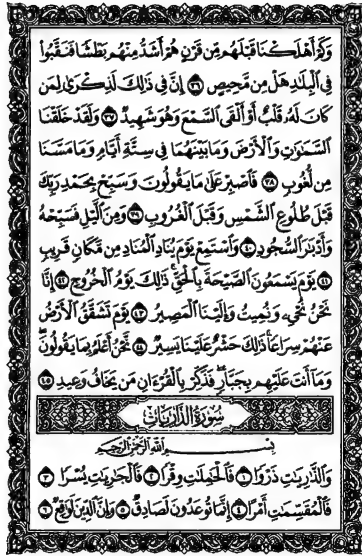 وَكَمْ أَهْلَكْنَا قَبْلَهُم مِّن قَرْنٍ هُمْ أَشَدُّ مِنْهُم بَطْشًا فَنَقَّبُوا
فِي الْبِلَادِ هَلْ مِن مَّحِيصٍ ٣٦ إِنَّ فِي ذَٰلِكَ لَذِكْرَىٰ لِمَن
كَانَ لَهُ قَلْبٌ أَوْ أَلْقَى السَّمْعَ وَهُوَ شَهِيدٌ ٣٧ وَلَقَدْ خَلَقْنَا
السَّمَٰوَٰتِ وَالْأَرْضَ وَمَا بَيْنَهُمَا فِي سِتَّةِ أَيَّامٍ وَمَا مَسَّنَا
مِن لُّغُوبٍ ٣٨ فَاصْبِرْ عَلَىٰ مَا يَقُولُونَ وَسَبِّحْ بِحَمْدِ رَبِّكَ
قَبْلَ طُلُوعِ الشَّمْسِ وَقَبْلَ الْغُرُوبِ ٣٩ وَمِنَ الَّيْلِ فَسَبِّحْهُ
وَأَدْبَٰرَ السُّجُودِ ٤٠ وَاسْتَمِعْ يَوْمَ يُنَادِ الْمُنَادِ مِن مَّكَانٍ قَرِيبٍ
٤١ يَوْمَ يَسْمَعُونَ الصَّيْحَةَ بِالْحَقِّ ذَٰلِكَ يَوْمُ الْخُرُوجِ ٤٢ إِنَّا
نَحْنُ نُحْيِۦ وَنُمِيتُ وَإِلَيْنَا الْمَصِيرُ ٤٣ يَوْمَ تَشَقَّقُ الْأَرْضُ
عَنْهُمْ سِرَاعًا ذَٰلِكَ حَشْرٌ عَلَيْنَا يَسِيرٌ ٤٤ نَّحْنُ أَعْلَمُ بِمَا يَقُولُونَ
وَمَا أَنتَ عَلَيْهِم بِجَبَّارٍ فَذَكِّرْ بِالْقُرْءَانِ مَن يَخَافُ وَعِيدِ ٤٥
سُورَةُ الذَّارِيَاتِ
بِسْمِ اللَّهِ الرَّحْمَٰنِ الرَّحِيمِ
وَالذَّٰرِيَٰتِ ذَرْوًا ١ فَالْحَٰمِلَٰتِ وِقْرًا ٢ فَالْجَٰرِيَٰتِ يُسْرًا ٣
فَالْمُقَسِّمَٰتِ أَمْرًا ٤ إِنَّمَا تُوعَدُونَ لَصَادِقٌ ٥ وَإِنَّ الدِّينَ لَوَٰقِعٌ ٦